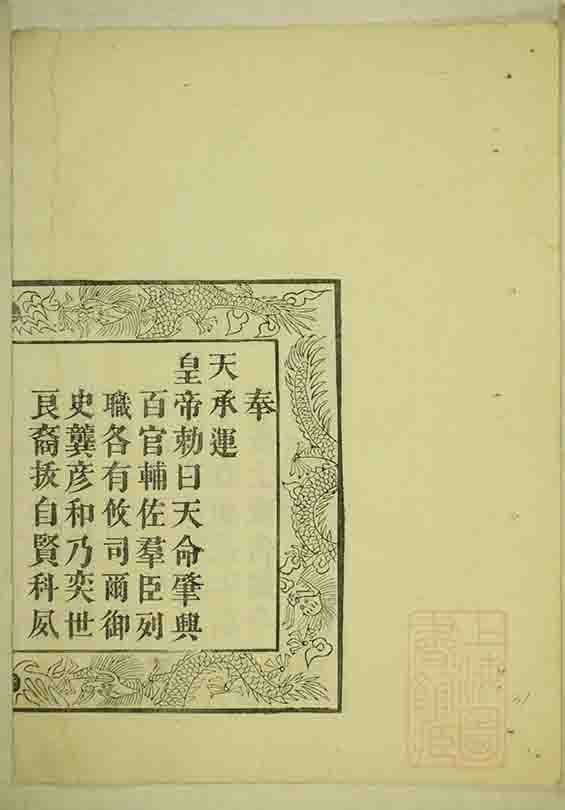 奉
天承運
皇帝勅曰天命肇興
百官輔佐羣臣列
職各有攸司爾御
史龔彦和乃奕世
良裔拔自賢科夙
上海圖
書館藏